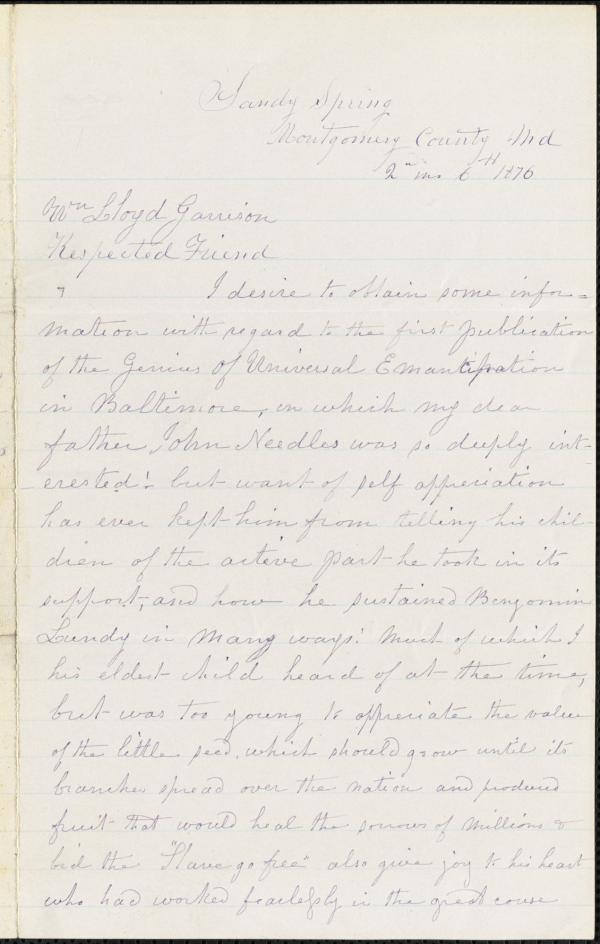 Sandy Spring
Montgomery County Md
2nd mo 6th 1876
Wm Lloyd Garrison
Respected Friend
I desire to obtain some infor=
mation with regard to the first publication
of the Genius of Universal Emancipation
in Baltimore, in which my dear
father, John Needles was so deeply int-
erested! but want of self appreciation
has ever kept him from telling his chil-
dren of the active part he took in its
support, and how he sustained Bengomin
Lundy in many ways! Much of which I
his eldest child heard of at the time,
but was too young to appreciate the value
of the little seed which should grow until its
branches spread over the nation and produced
fruit that would heal the sorrows of millions &
bid the "Slave go free" also give joy to his heart
who had worked fearlessly in the great cause